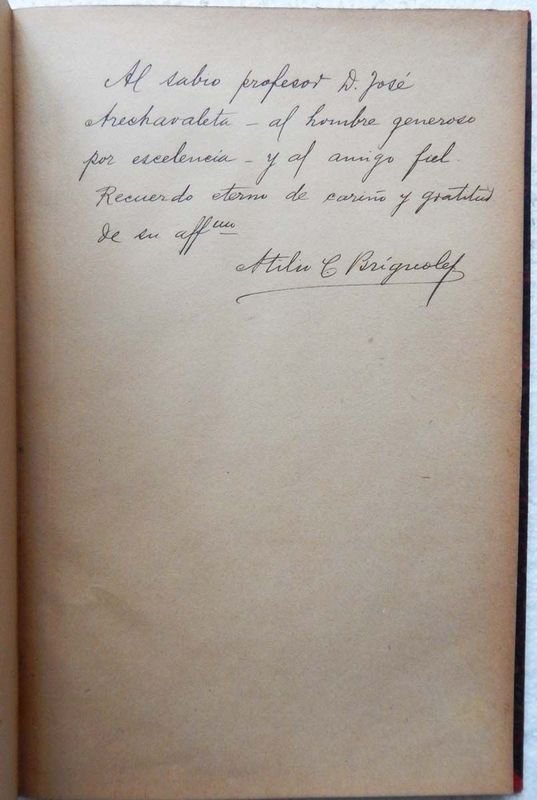 Al sabio profesor D. José
Arechavaleta - al hombre generoso
por escelencia - y al amigo fiel.
Recuerdo eterno de cariño y gratitud
de su affmo
Atilio C Brignole